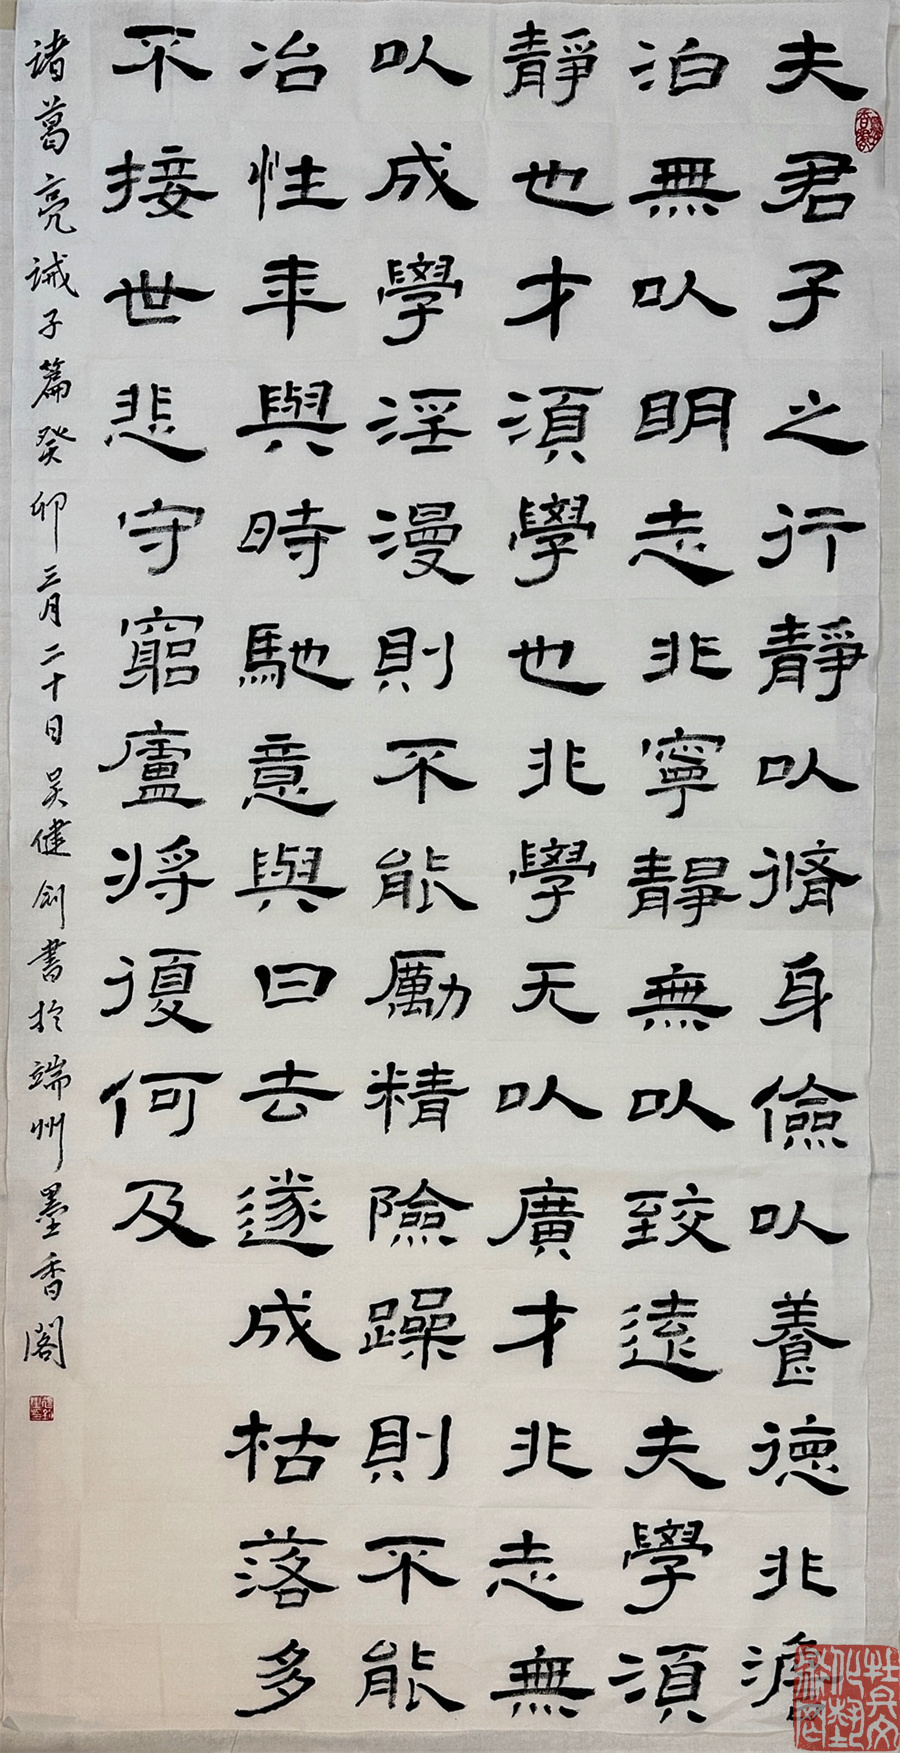 夫君子之行靜以脩身儉以養德非澹
泊無以明志非寧靜無以致遠夫學須
靜也才須學也非學无以廣才非志無
以成學淫漫則不能勵精險躁則不能
冶性年與時馳意與日去遂成枯落多
不接世悲守窮廬將復何及
诸葛亮诫子篇癸卯三月二十日吴健剑書扵端州墨香阁